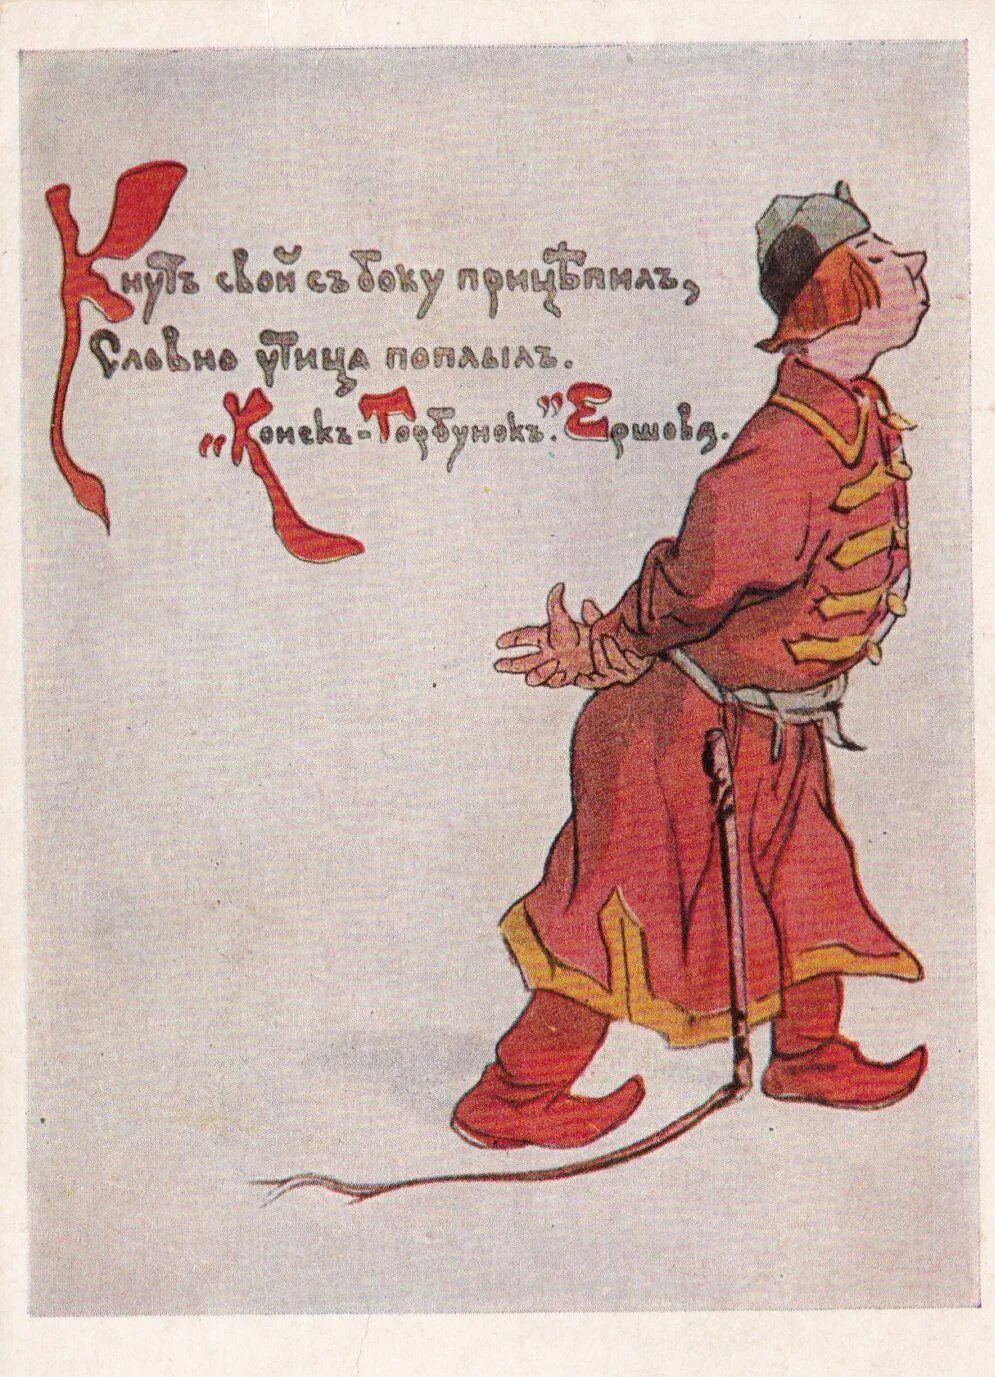 Кнутъ свой съ боку прицѣпилъ,
Словно утица поплылъ.
„Конекъ-Горбунокъ.” Ершова.